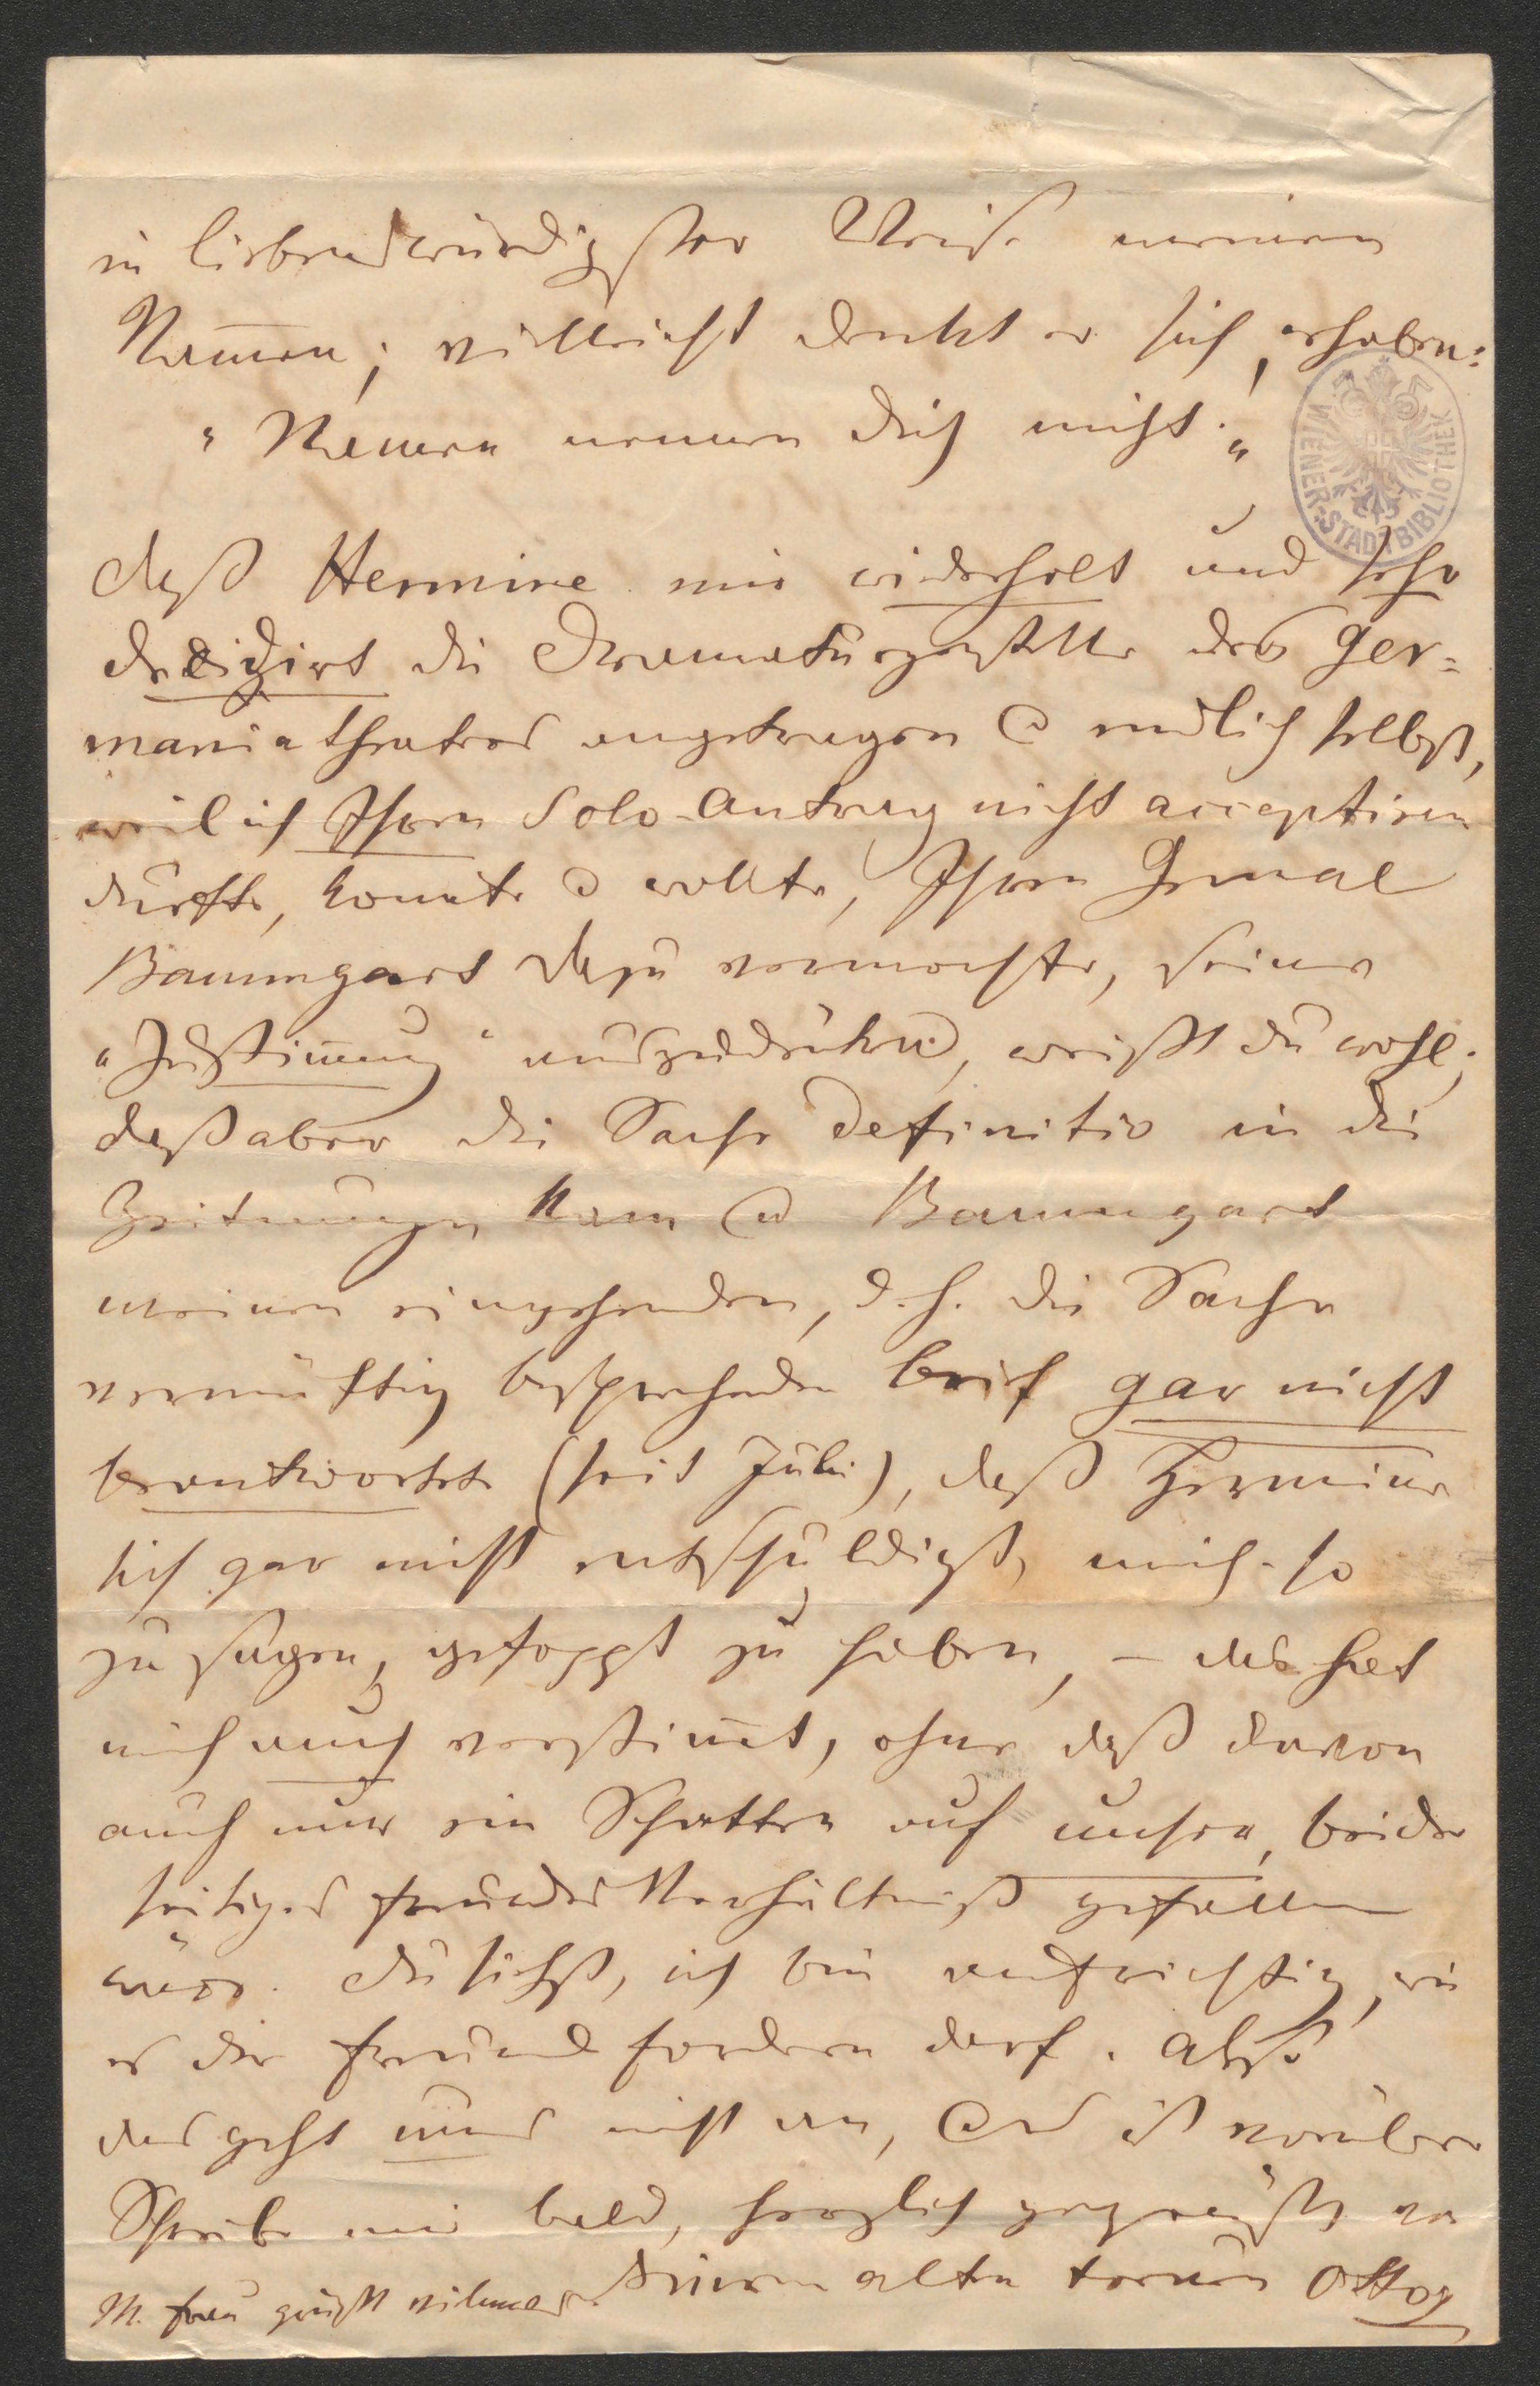 in liebenswürdigster Weise meinen
Namen; vielleicht denkt er sich, erhaben:
"Namen nennen dich nicht."
WIENER-STADTBIBLIOTHEK
daß Hermine mir wiederholt und sehr
dezidirt die Dramaturgenstelle des Ger=
maniatheaters angetragen & endlich selbst,
weil ich Ihren Solo-Antrag nicht acceptiren
durfte, konnte & wollte, Ihren Gemal
Baumgart dazu vermochte, seine
"Zustimung" auszudrücken, weißt du wohl;
daß aber die Sache definitiv in die
Zeitungen kam & Baumgart
meinen eingehenden, d. h. die Sache
vernünftig besprechenden Brief gar nicht
beantwortete (seit Juli), daß Hermine
sich gar nicht entschuldigt, mich so
zu sagen, gefoppt zu haben, – das hat
mich auch verstimt, ohne daß davon
auch nur ein Schatten auf unser, beider
seitiges Freundes Verhältniß gefallen
wäre. Du siehst, ich bin aufrichtig, wie
es der Freund fordern darf. Also
das geht uns nicht an, & ist vorüber
Schreibe mir bald, herzlich gegrüßt von
Deinem alten treuen Otto
M. Frau grüßt vielmals.